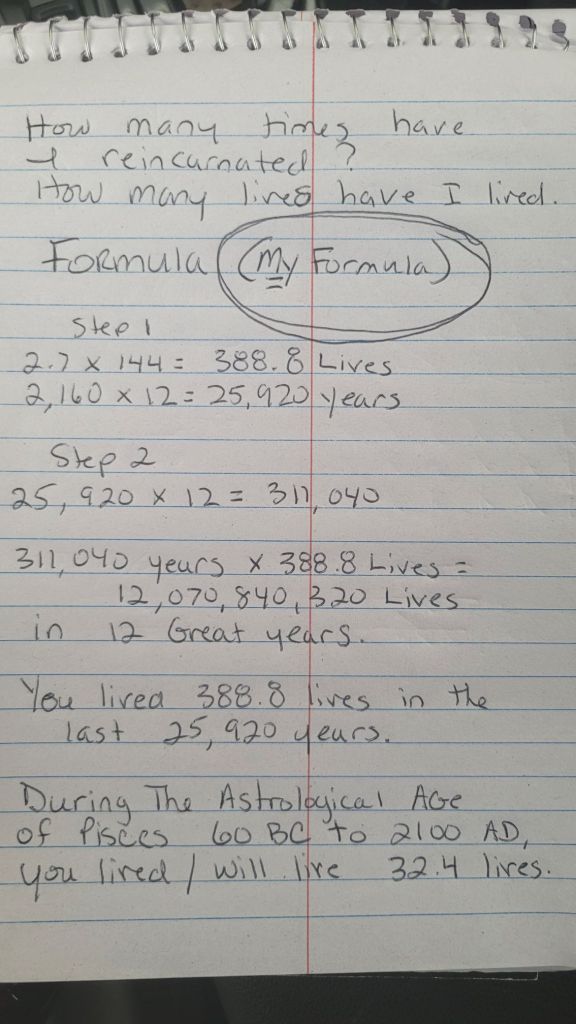 How many times have
I reincarnated?
How many lives have I lived.
Formula (My Formula)
Step 1
2.7 x 144 = 388.8 Lives
2,160 x 12 = 25,920 years
Step 2
25,920 x 12 = 311,040
311,040 years x 388.8 Lives =
12,070,840,320 Lives
in 12 Great years.
You lived 388.8 lives in the
last 25,920 years.
During The Astrological Age
of Pisces 60 BC to 2100 AD,
you lived / will live 32.4 lives.